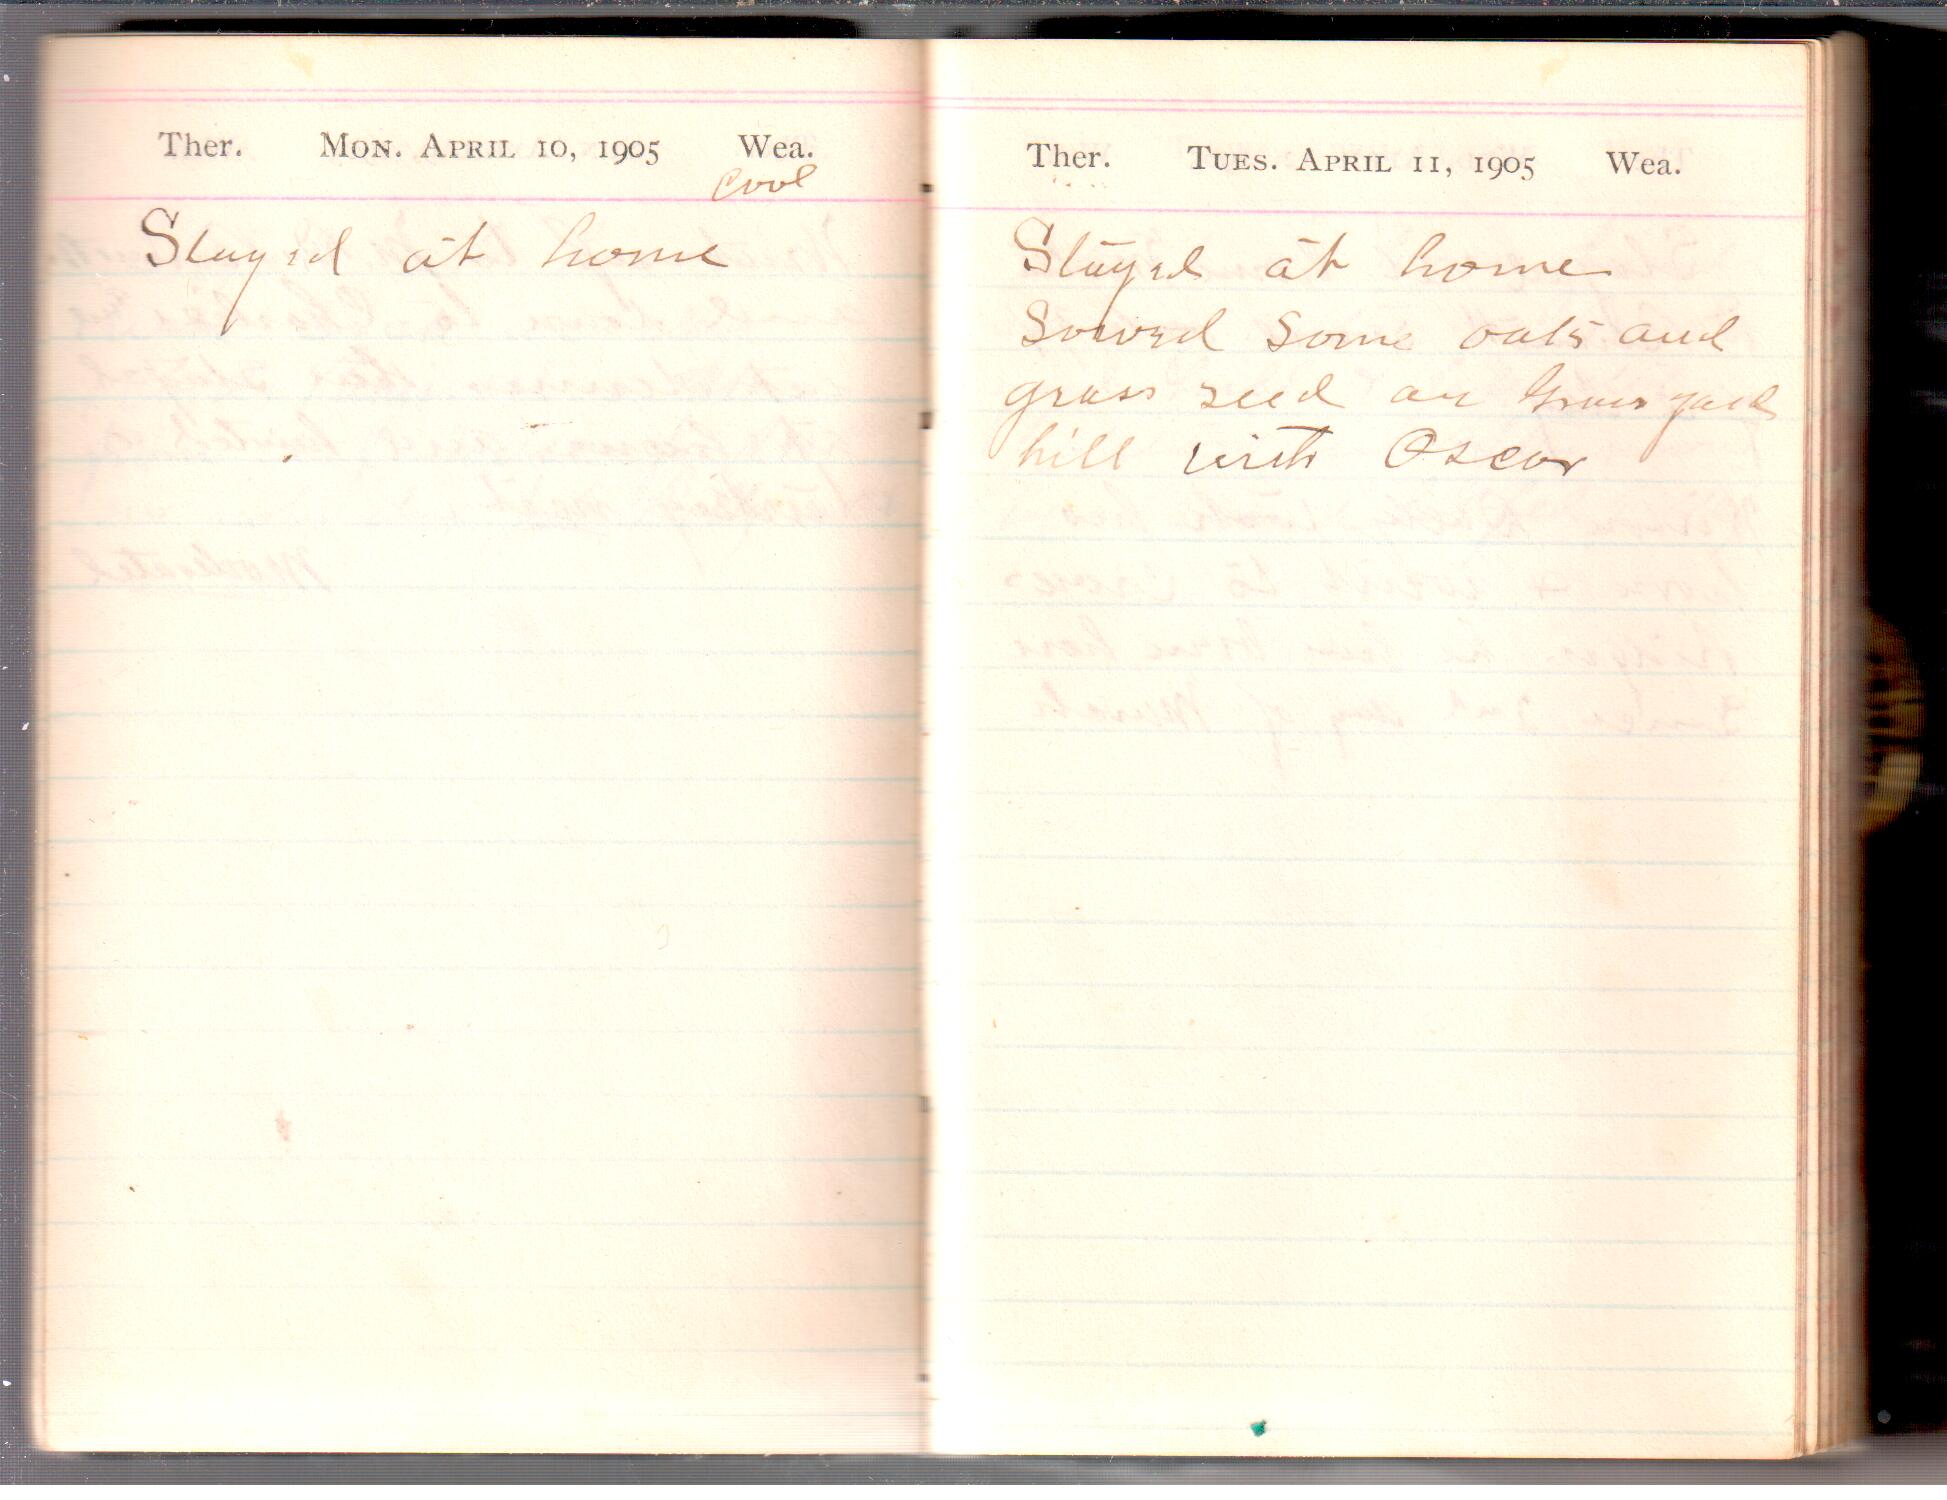 Ther. Mon. April 10, 1905 Wea.
Cool
Stayed at home
Ther. Tues. April 11, 1905 Wea.
Stayed at home
Sowed some oats and
grass seed on Grave yard
hill with Oscar